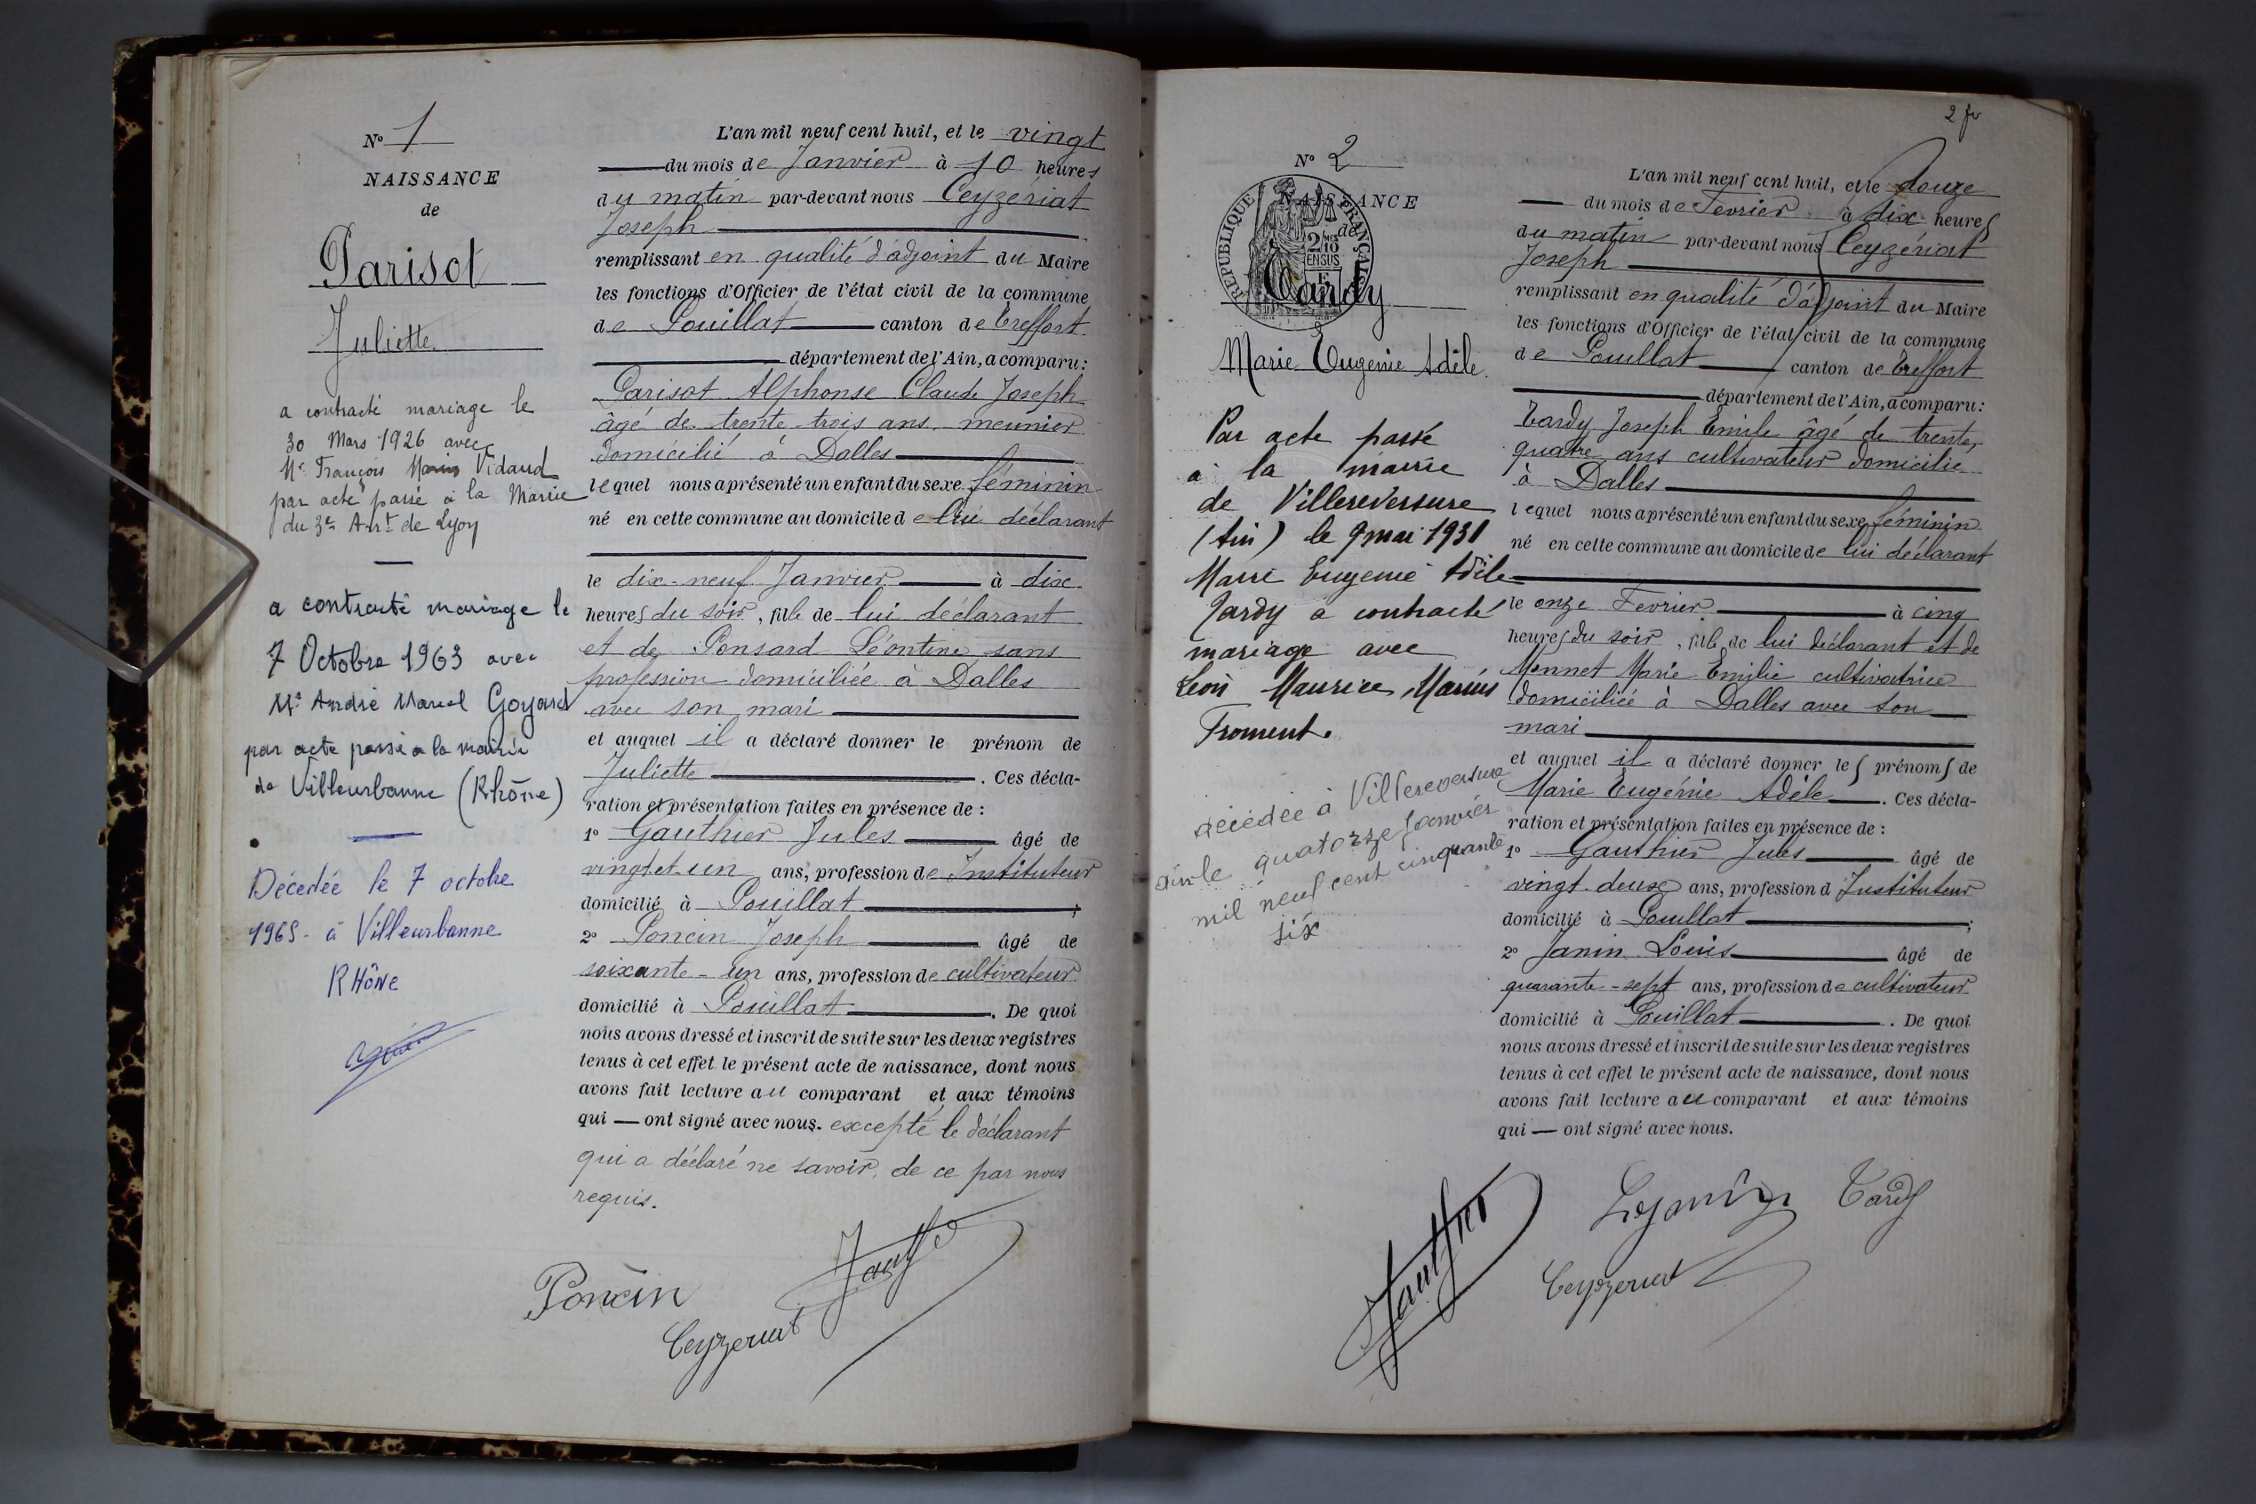 N° 1
NAISSANCE
de
Parisot
Juliette
a contracté mariage le
30 Mars 1926 avec
Mr François Marius Vidaud
par acte passé à la Mairie
du 3e Arrt de Lyon
a contracté mariage le
7 Octobre 1963 avec
Mr André Marcel Goyard
par acte passé à la mairie
de Villeurbanne (Rhône)
Décedée le 7 octobre
1965 - à Villeurbanne
RHôNe
L'an mil neuf cent huit, et le vingt
du mois de Janvier à 10 heures
du matin par-devant nous Ceyzériat
Joseph
remplissant en qualité d'adjoint du Maire
les fonctions d'Officier de l'état civil de la commune
de Pouillat canton de Treffort
département de l'Ain, a comparu :
Parisot Alphonse Claude Joseph
âgé de trente trois ans meunier
domicilié à Dalles
lequel nous a présenté un enfant du sexe féminin
né en cette commune au domicile de lui déclarant
le dix-neuf Janvier à dix
heures du soir, fille de lui déclarant
et de Ponsard Léontine sans
profession domiciliée à Dalles
avec son mari
et auquel il a déclaré donner le prénom de
Juliette . Ces décla-
ration et présentation faites en présence de :
1° Gauthier Jules âgé de
vingt et un ans, profession de Instituteur
domicilié à Pouillat ;
2° Poncin Joseph âgé de
soixante - un ans, profession de cultivateur
domicilié à Pouillat . De quoi
nous avons dressé et inscrit de suite sur les deux registres
tenus à cet effet le présent acte de naissance, dont nous
avons fait lecture au comparant et aux témoins
qui — ont signé avec nous. excepté le déclarant
qui a déclaré ne savoir, de ce par nous
requis.
Poncin
Ceyzeriat
2 fr
N° 2
NAISSANCE
de
REPUBLIQUE FRANÇAISE
Tardy
Marie Eugénie Adèle
Par acte passé
à la mairie
de Villereversure
(Ain) le 9 mai 1931
Marie Eugénie Adèle
Tardy a contracté
mariage avec
Léon Maurice Marius
Froment.
décédée à Villereversure
Ain le quatorze Janvier
mil neuf cent cinquante
six
L'an mil neuf cent huit, et le douze
du mois de Fevrier à dix heures
du matin par-devant nous Ceyzériat
Joseph
remplissant en qualité d'adjoint du Maire
les fonctions d'Officier de l'état civil de la commune
de Pouillat canton de Treffort
département de l'Ain, a comparu :
Tardy Joseph Emile âgé de trente
quatre ans cultivateur domicilié
à Dalles
lequel nous a présenté un enfant du sexe féminin
né en cette commune au domicile de lui déclarant
le onze Fevrier à cinq
heures du soir, fille de lui déclarant et de
Monnet Marie Emilie cultivatrice
domiciliée à Dalles avec son
mari
et auquel il a déclaré donner les prénoms de
Marie Eugénie Adèle . Ces décla-
ration et présentation faites en présence de :
1° Gauthier Jules âgé de
vingt-deux ans, profession d Instituteur
domicilié à Pouillat ;
2° Janin Louis âgé de
quarante-sept ans, profession de cultivateur
domicilié à Pouillat . De quoi
nous avons dressé et inscrit de suite sur les deux registres
tenus à cet effet le présent acte de naissance, dont nous
avons fait lecture au comparant et aux témoins
qui — ont signé avec nous.
Tardy
Gauthier
Ceyzeriat